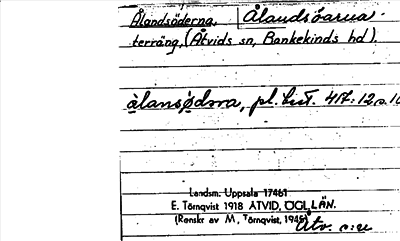 Ålandsöderna, Ålandsöarna
terräng, (Åtvids sn, Bankekinds hd).
pl. best. 417: 12 o. 10
Landsm. Uppsala 17461
E. Törnqvist 1918 ÅTVID, ÖGL. LÄN.
(Renskr av M. Törnqvist, 1945)
Åtv.